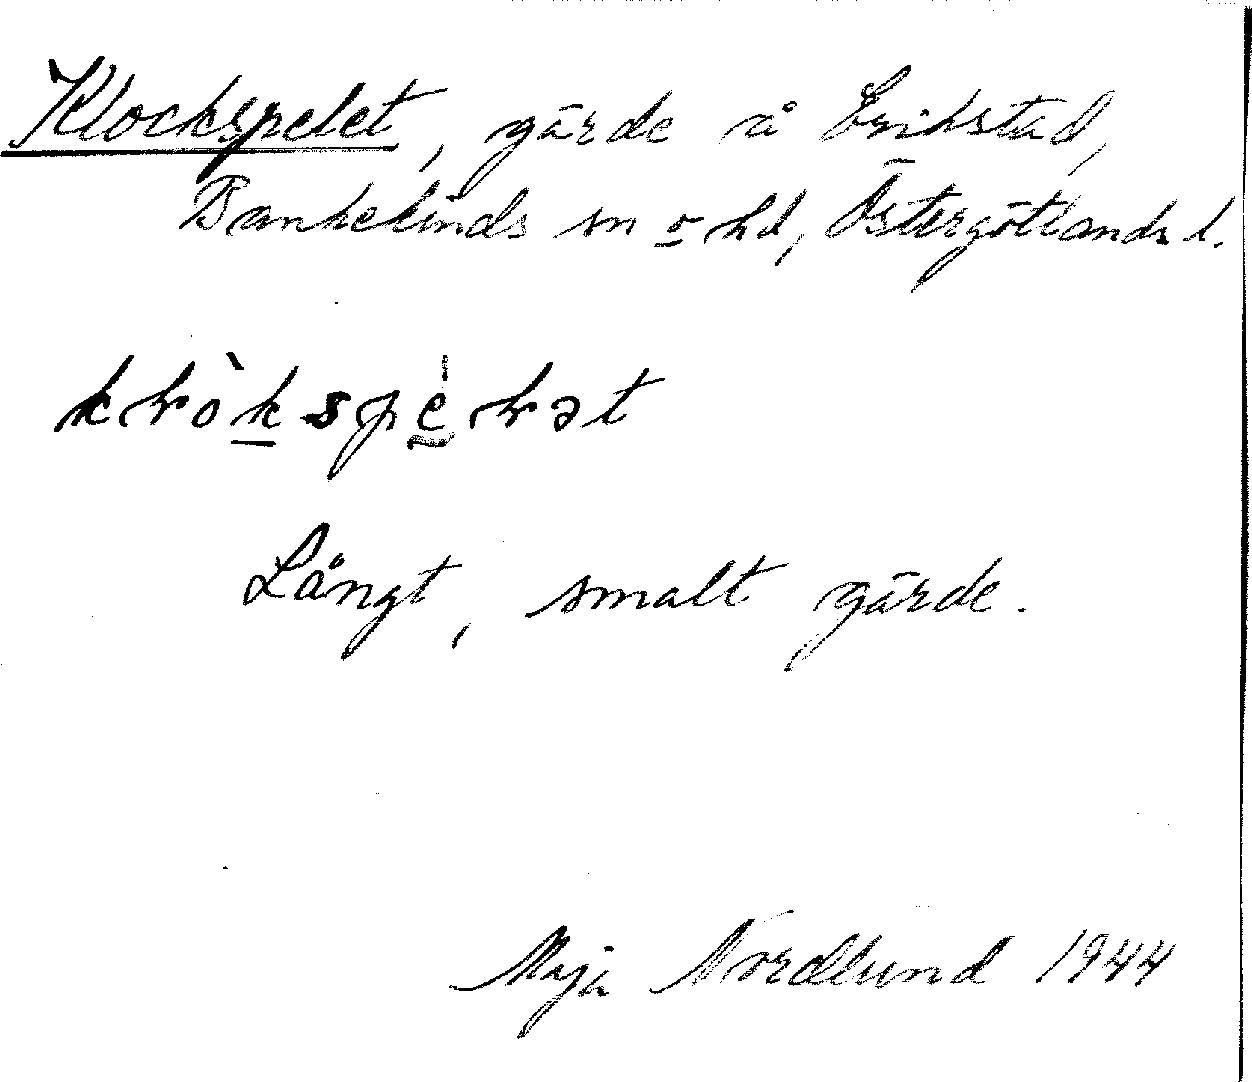 Klockspelet, gärde å Erikstad,
Bankekinds sn o hd, Östergötlands l.
Långt, smalt gärde.
Maja Nordlund 1944